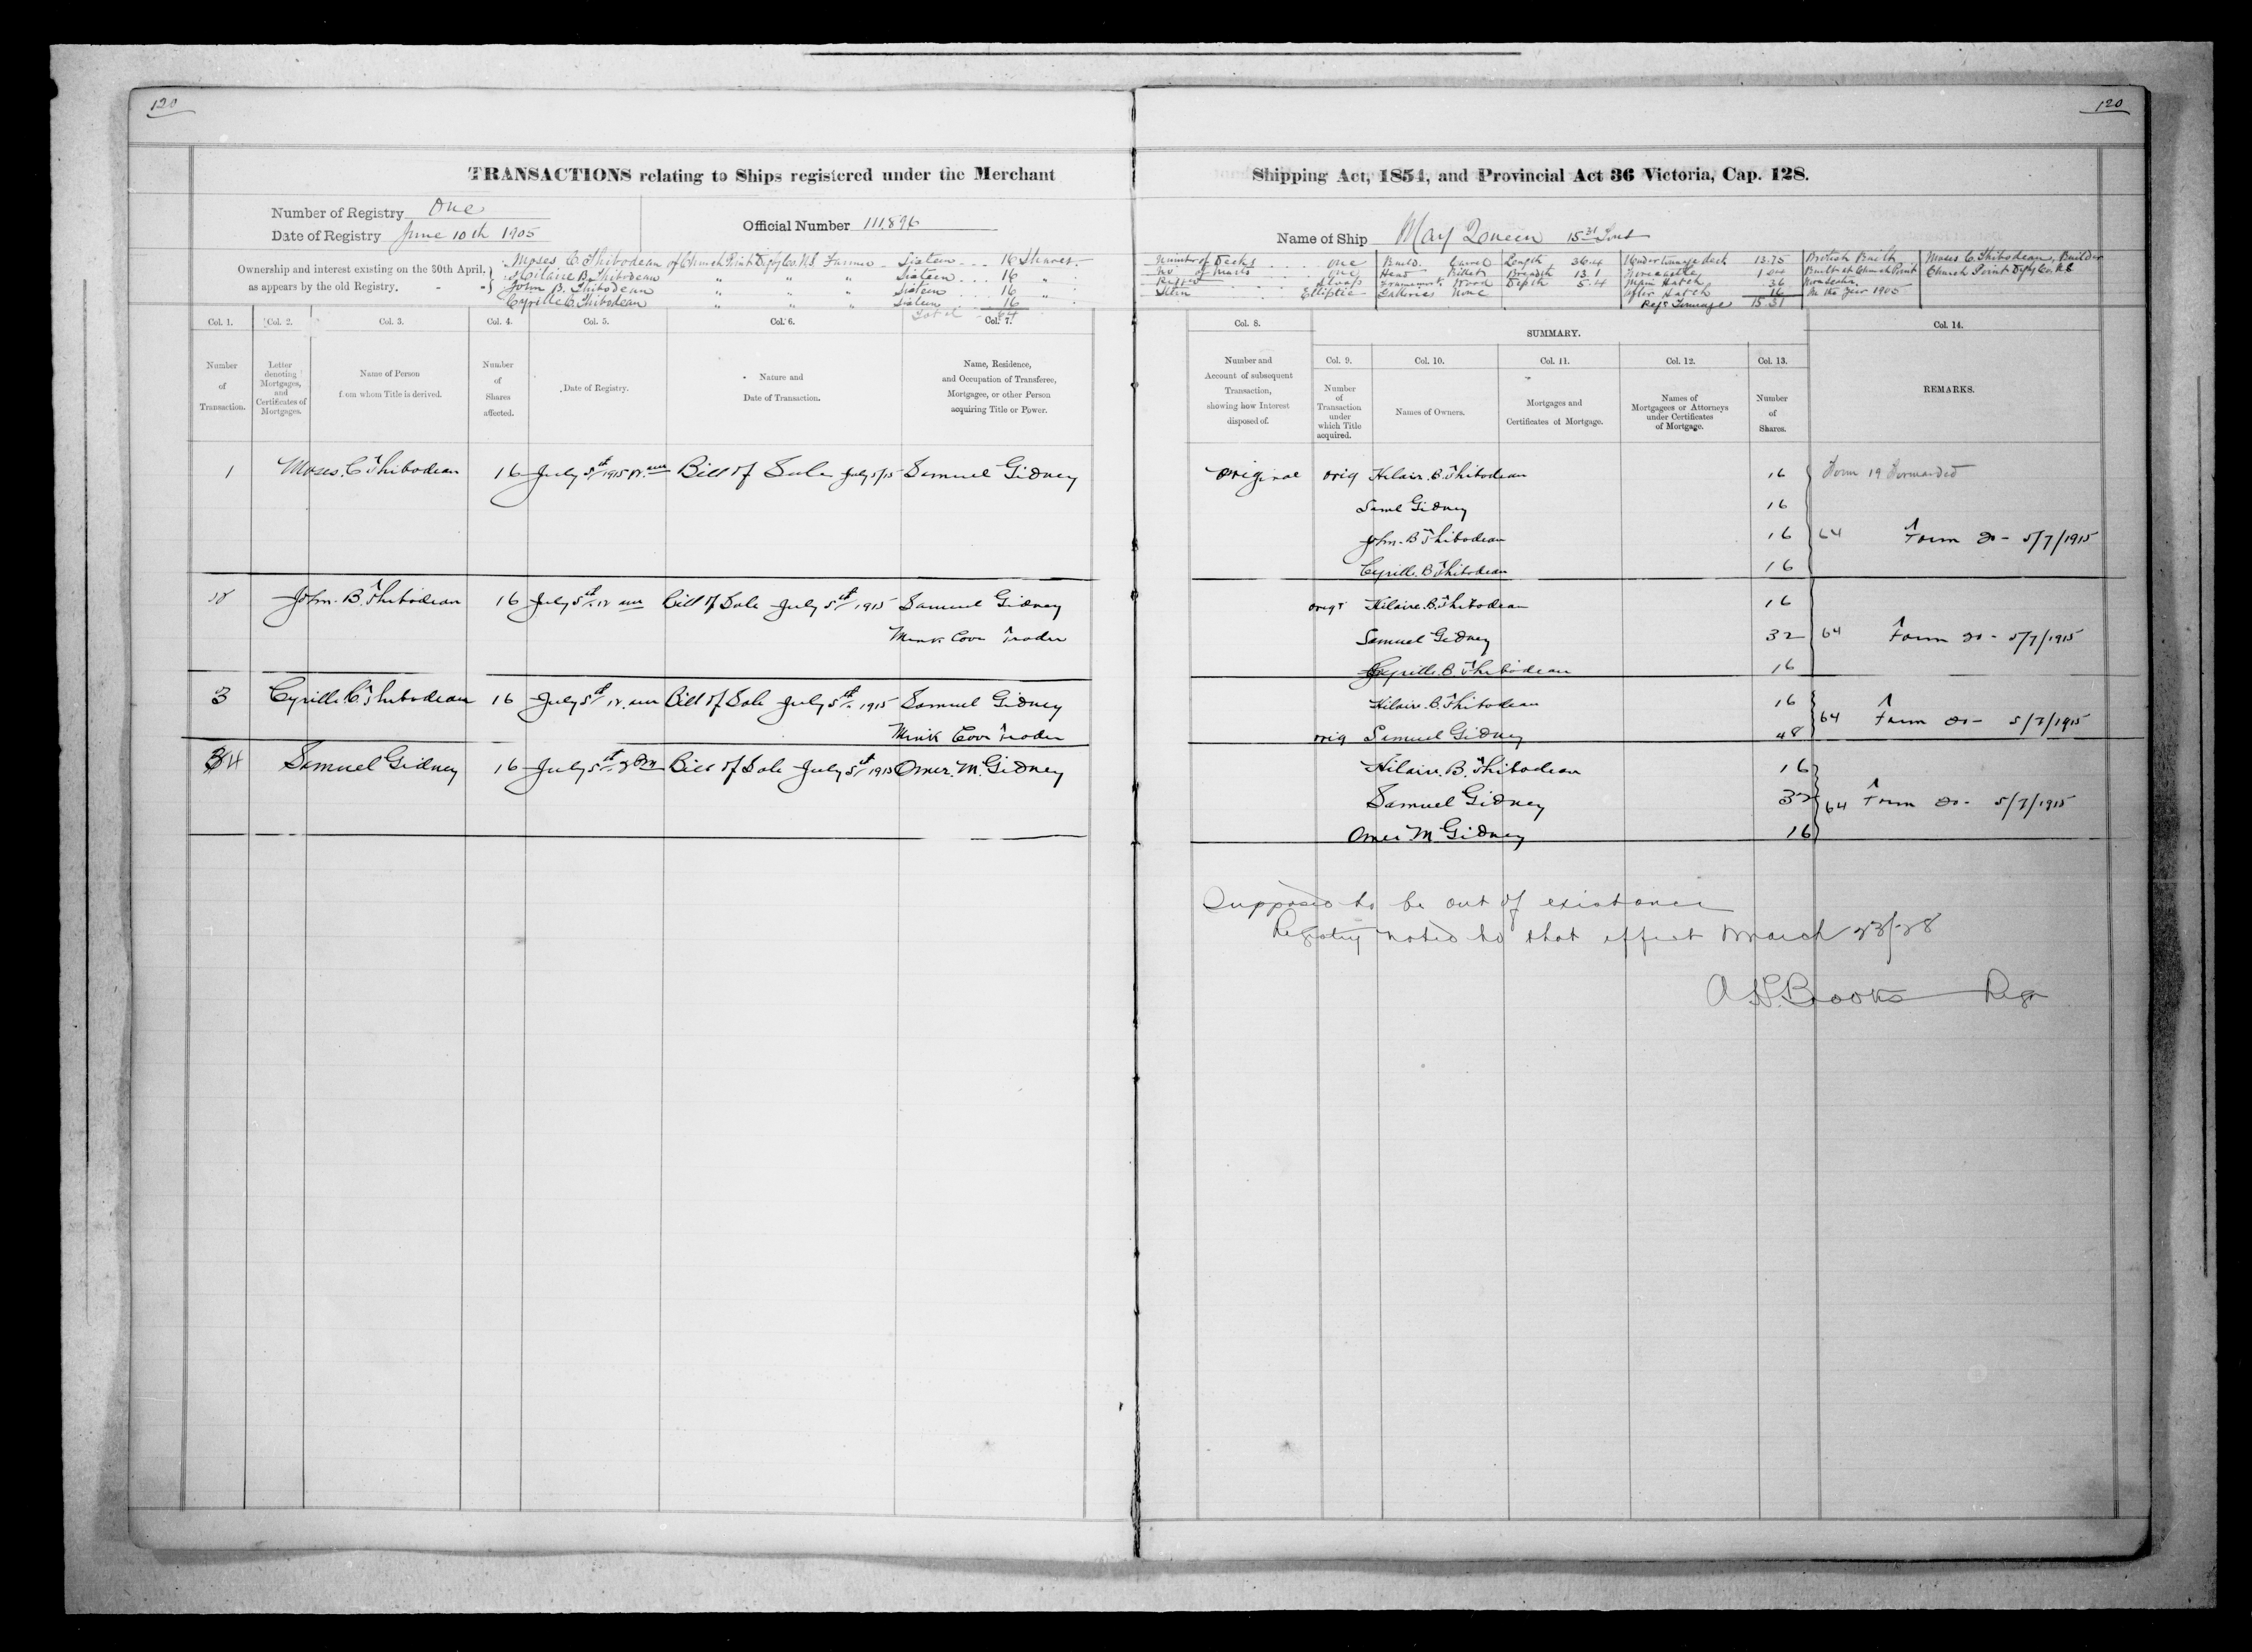 120
120
TRANSACTIONS relating to Ships registered under the Merchant Shipping Act, 1854, and Provincial Act 36 Victoria, Cap. 128.
Number of Registry One
Date of Registry June 10th 1905
Official Number 111,896
Name of Ship May Queen 15 31 Tons
Ownership and interest existing on the 30th April,
as appears by the old Registry.
Moses C. Thibodeau of Church Point Digby Co. N.S. Farmer Sixteen 16 Shares
Hilaire B. Thibodeau " " " Sixteen 16 "
John B. Thibodeau " " " Sixteen 16 "
Cyrille C. Thibodeau " " " Sixteen 16 "
Total 64
Number of Decks one Build Carvel Length 36.4 Under tonnage deck 13.75 British Built Moses C. Thibodeau, Builder
No of Masts one Head Billet Breadth 13.1 Forecastle 1.04 Built at Church Point Church Point Digby Co. N.S
Rigged Sloop Framework Wood Depth 5.4 Main Hatch 36 Nova Scotia
Stern Elliptic Galleries None After Hatch 16 In the Year 1905
Regr Tonnage 15.31
Col. 1.
Number
of
Transaction.
Col. 2.
Letter
denoting
Mortgages,
and
Certificates of
Mortgages.
Col. 3.
Name of Person
from whom Title is derived.
Col. 4.
Number
of
Shares
affected.
Col. 5.
Date of Registry.
Col. 6.
Nature and
Date of Transaction.
Col. 7.
Name, Residence,
and Occupation of Transferee,
Mortgagee, or other Person
acquiring Title or Power.
Col. 8.
Number and
Account of subsequent
Transaction,
showing how Interest
disposed of.
SUMMARY.
Col. 9.
Number
of
Transaction
under
which Title
acquired.
Col. 10.
Names of Owners.
Col. 11.
Mortgages and
Certificates of Mortgage.
Col. 12.
Names of
Mortgagees or Attorneys
under Certificates
of Mortgage.
Col. 13.
Number
of
Shares.
Col. 14.
REMARKS.
1 Moses. C Thibodeau 16 July 5th 1915 Bill of Sale July 5/15 Samuel Gidney
Original orig Hilair. B. Thibodeau 16 Form 19 Forwarded
Saml Gidney 16
John. B Thibodeau 16 64 Form 20 - 5/7/1915
Cyrille. B Thibodeau 16
2 John. B. Thibodeau 16 July 5th 12 am Bill of Sale July 5th 1915 Samuel Gidney
Mink Cove Trader
orig Hilaire. B. Thibodeau 16
Samuel Gidney 32 64 Form 20 - 5/7/1915
Cyrille. B. Thibodeau 16
3 Cyrille C Thibodeau 16 July 5th 12. am Bill of Sale July 5th 1915 Samuel Gidney
Mink Cove Trader
Hilaire. B. Thibodeau 16
orig Samuel Gidney 48 64 Form 20 - 5/7/1915
4 Samuel Gidney 16 July 5th 2 Pm Bill of Sale July 5th 1915 Omer. M. Gidney
Hilaire. B. Thibodeau 16
Samuel Gidney 32 64 Form 20 - 5/7/1915
Omer M Gidney 16
Supposed to be out of existance
Registry noted to that effect March 23/28
Brooks Regr